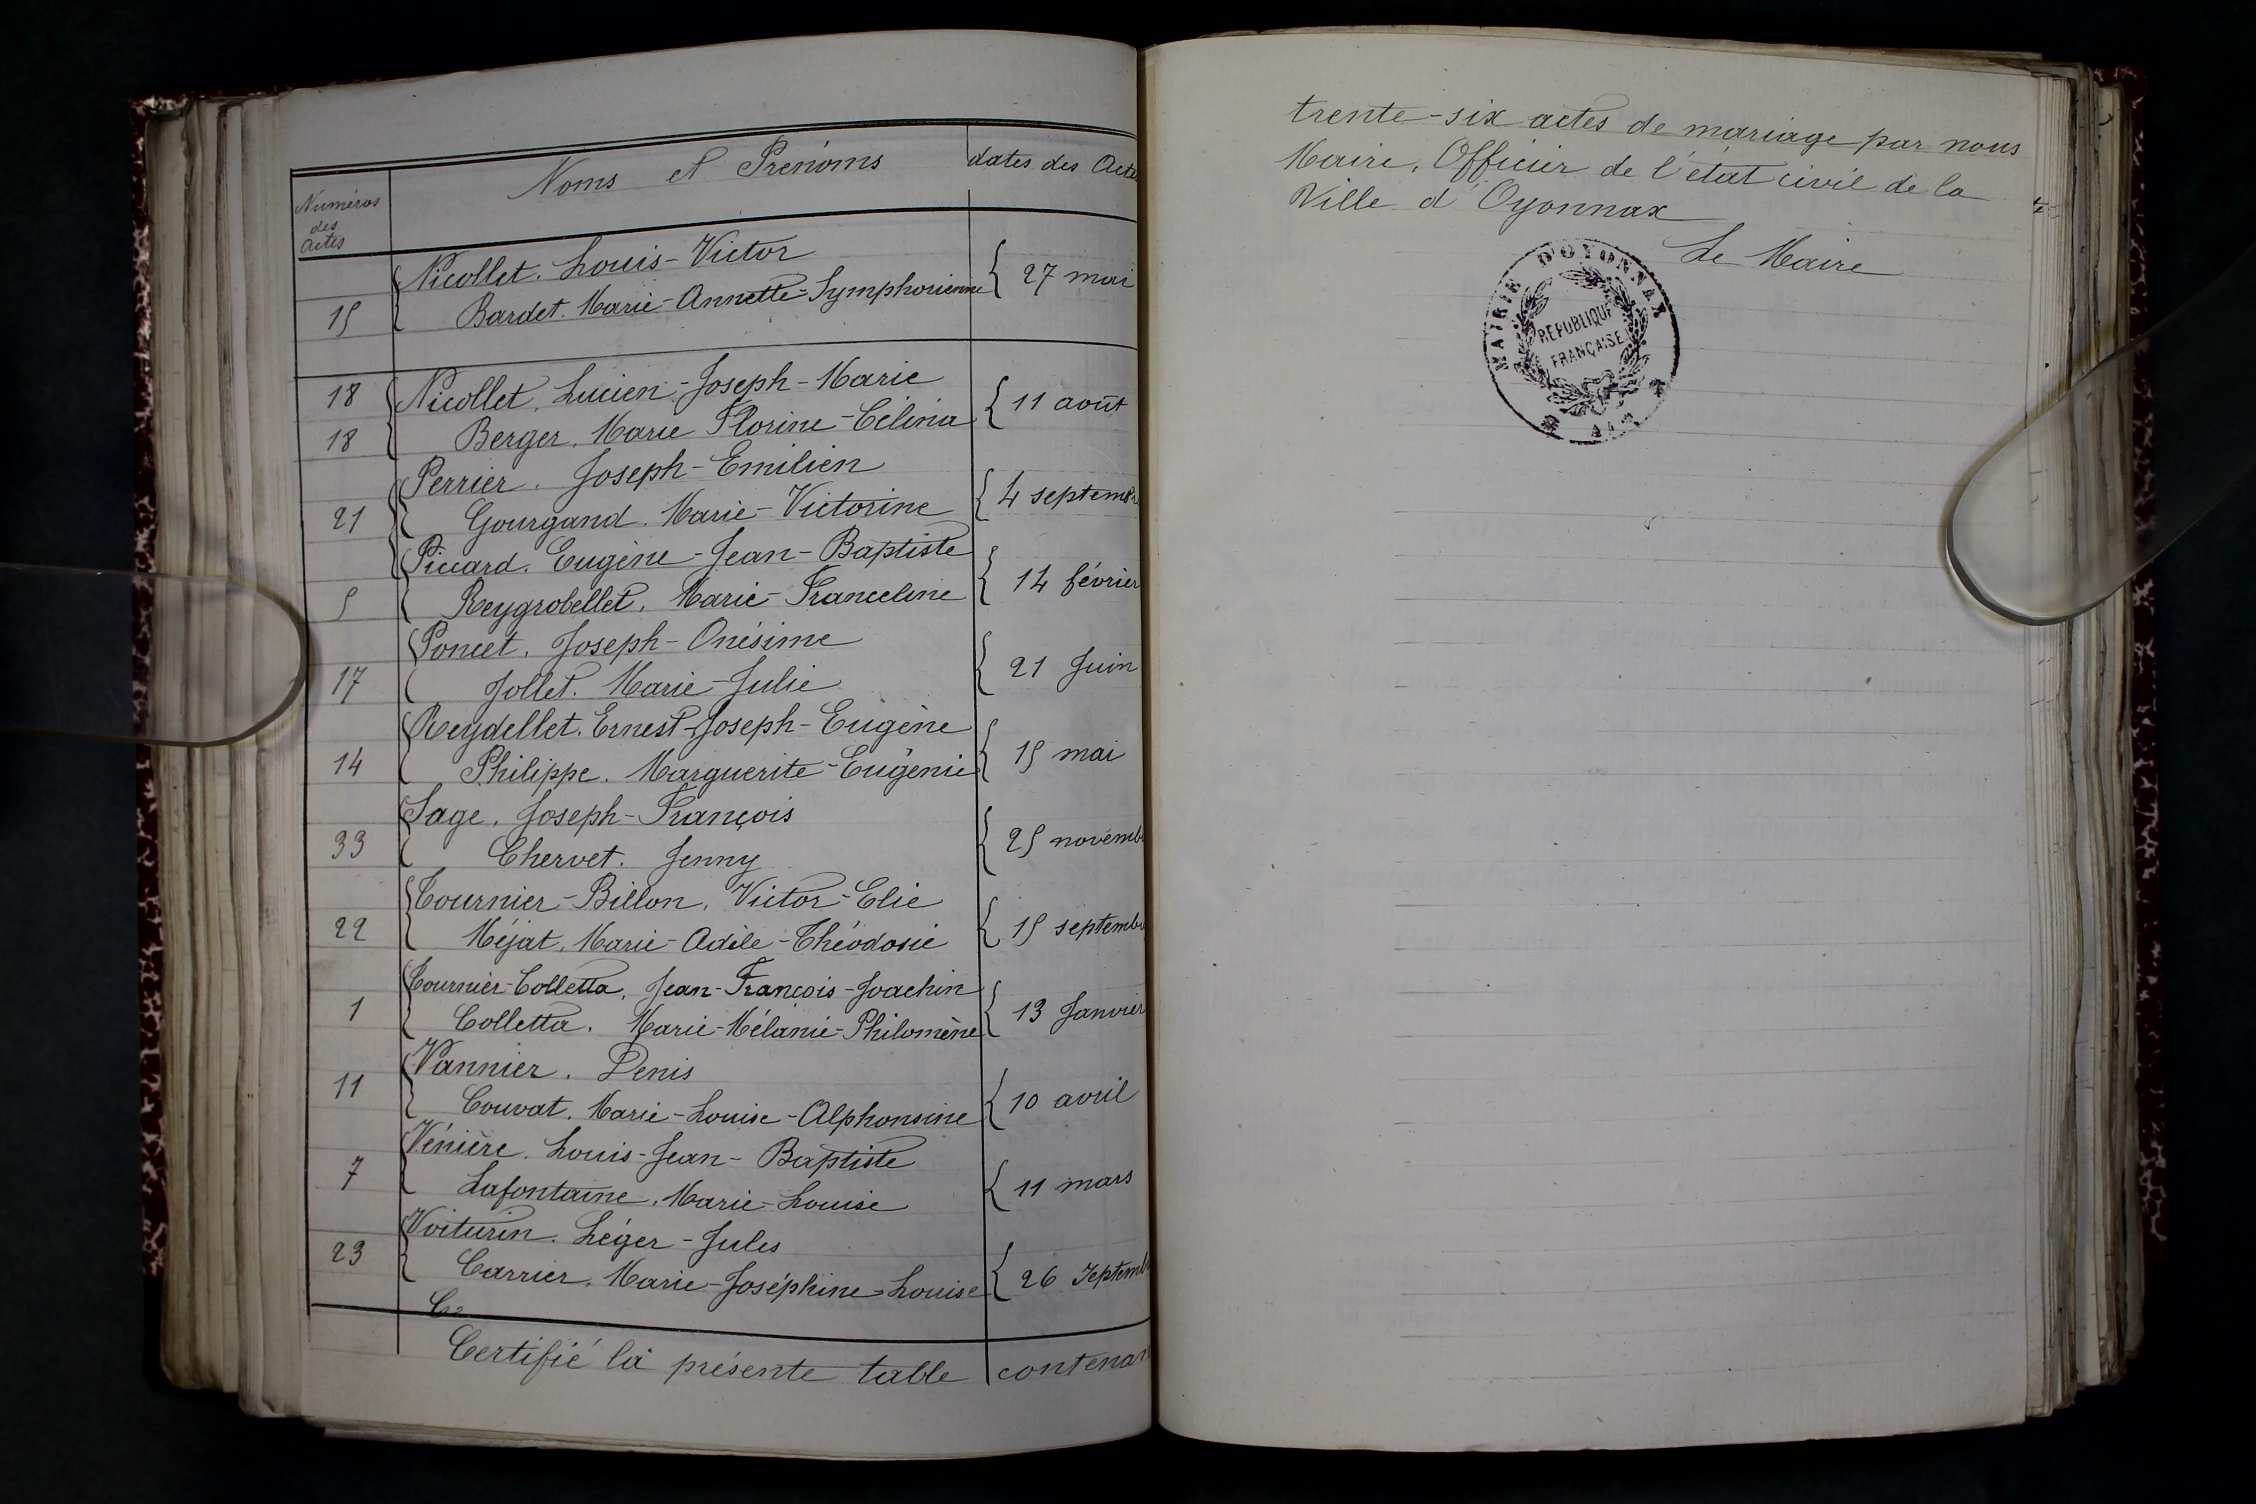 Numéros
des
Actes
Noms et Prénoms
dates des Actes
Nicollet. Louis-Victor
15
Bardet. Marie-Annette-Symphorienne
27 mai
18
Nicollet. Lucien-Joseph-Marie
18
Berger. Marie Florine-Célina
11 août
Perrier. Joseph-Emilien
21
Gourgand. Marie-Victorine
4 septembre
Piccard. Eugène-Jean-Baptiste
5
Reygrobellet. Marie-Franceline
14 février
Poncet. Joseph-Onésime
17
Jollet. Marie-Julie
21 Juin
Reydellet. Ernest-Joseph-Eugène
14
Philippe. Marguerite-Eugénie
15 mai
Sage. Joseph-François
33
Chervet. Jenny
25 novemb
Tournier-Billon. Victor-Elie
22
Méjat. Marie-Adèle-Théodosie
15 septemb
Tournier-Colletta. Jean-François-Joachin
1
Colletta. Marie-Mélanie-Philomène
13 Janvier
Vannier. Denis
11
Couvat. Marie-Louise-Alphonsine
10 avril
Vénière. Louis-Jean-Baptiste
7
Lafontaine. Marie-Louise
11 mars
Voiturin. Léger-Jules
23
Carrier. Marie-Joséphine-Louise
26 Septemb
Certifié la présente table contenan
trente-six actes de mariage par nous
Maire, Officier de l'état civil de la
Ville d'Oyonnax
Le Maire
MAIRIE D'OYONNAX
RÉPUBLIQUE
FRANÇAISE
AIN